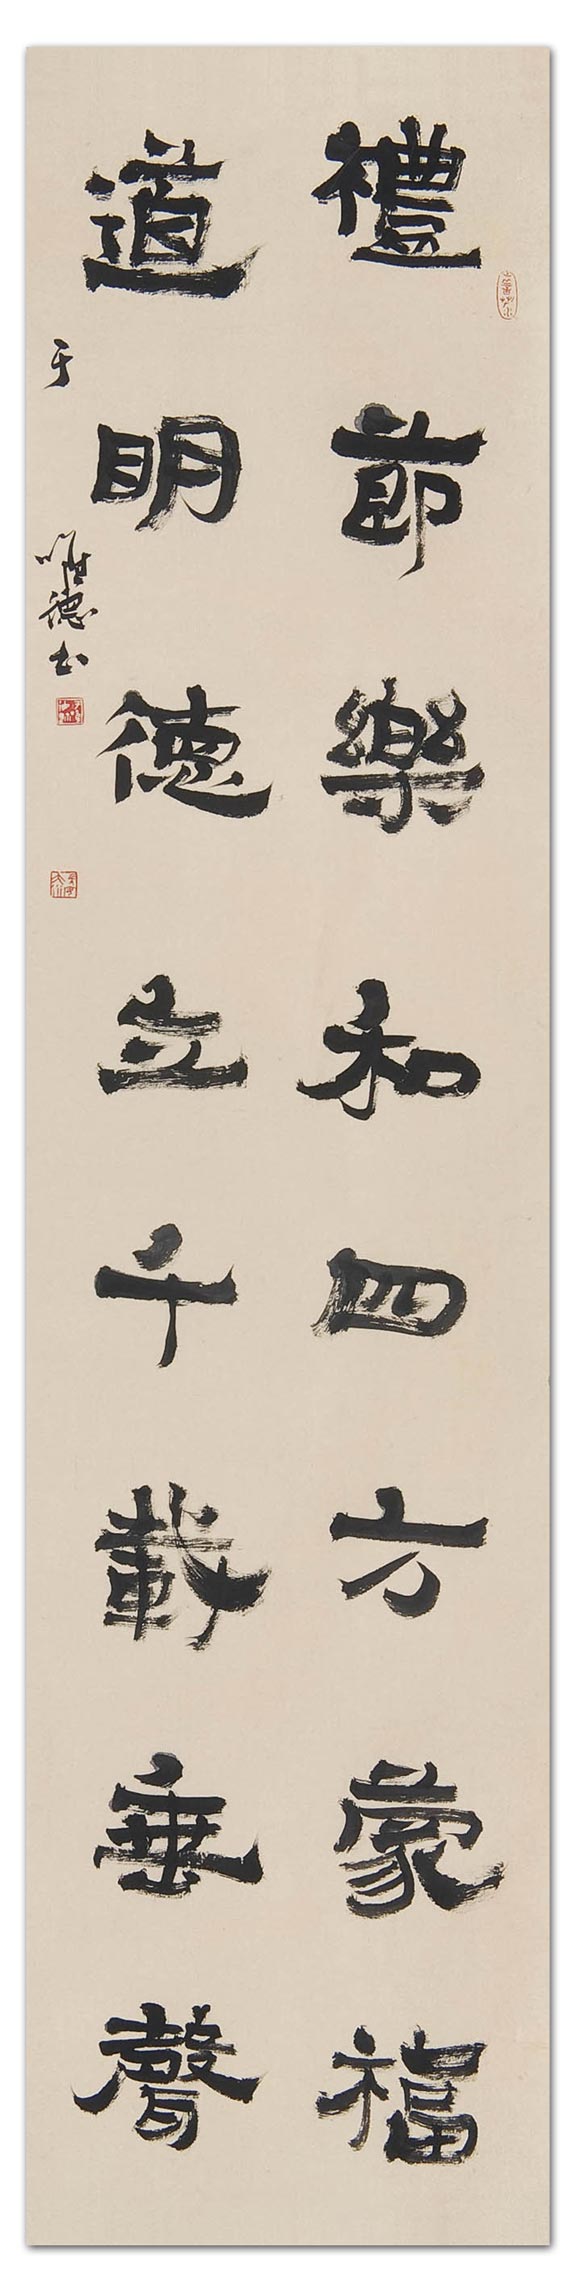 禮節樂和四方蒙福
道明德立千載垂聲
于唯德書